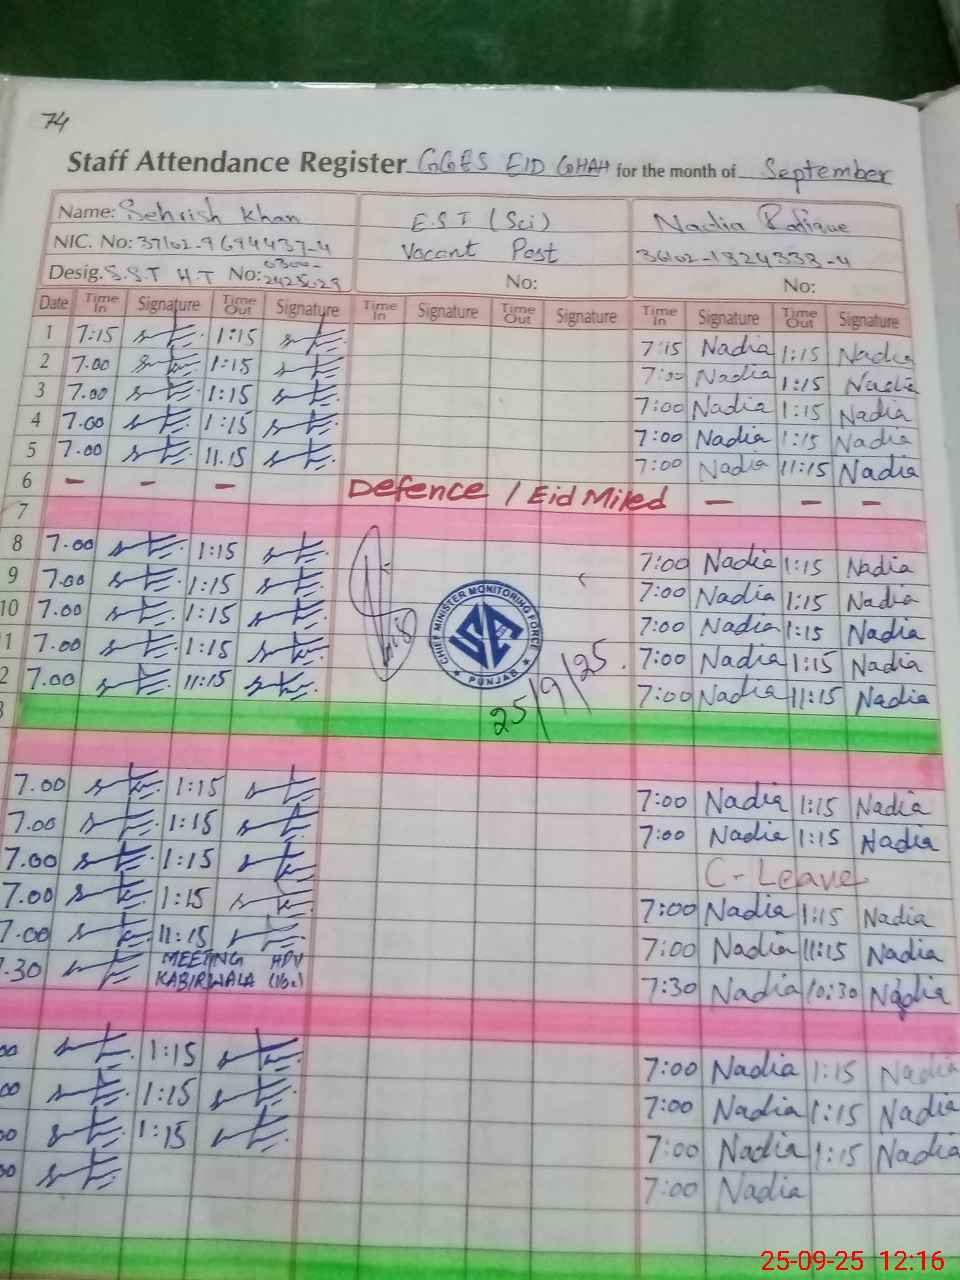 74
Staff Attendance Register GGES EID GHAH for the month of September
Name: Sehrish Khan E.S.T (Sci) Nadia Rafique
NIC. No: 37102-9694437-4 Vacant Post 36102-1824338-4
Desig. S.S.T H.T No: 0300-2425029 No: No:
Date Time In Signature Time Out Signature Time In Signature Time Out Signature Time In Signature Time Out Signature
1 7:15 1:15 7:15 Nadia 1:15 Nadia
2 7.00 1:15 7:00 Nadia 1:15 Nadia
3 7.00 1:15 7:00 Nadia 1:15 Nadia
4 7.00 1:15 7:00 Nadia 1:15 Nadia
5 7.00 11.15 7:00 Nadia 11:15 Nadia
6 - - - Defence / Eid Miled - - -
7
8 7.00 1:15 7:00 Nadia 1:15 Nadia
9 7.00 1:15 7:00 Nadia 1:15 Nadia
10 7.00 1:15 7:00 Nadia 1:15 Nadia
1 7.00 1:15 7:00 Nadia 1:15 Nadia
2 7.00 11:15 7:00 Nadia 11:15 Nadia
CHIEF MINISTER MONITORING FORCE
PUNJAB
25/9/25.
3
7.00 1:15 7:00 Nadia 1:15 Nadia
7.00 1:15 7:00 Nadia 1:15 Nadia
7.00 1:15 C-Leave
7.00 1:15 7:00 Nadia 1:15 Nadia
7.00 11:15 7:00 Nadia 11:15 Nadia
.30 MEETING KABIRWALA 7:30 Nadia 10:30 Nadia
00 1:15 7:00 Nadia 1:15 Nadia
00 1:15 7:00 Nadia 1:15 Nadia
00 1:15 7:00 Nadia 1:15 Nadia
00 7:00 Nadia
25-09-25 12:16